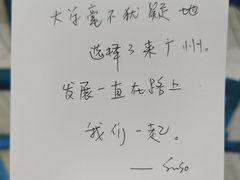 大学毫不犹疑地
选择了来广州。
发展一直在路上
我们一起。
—— Suso